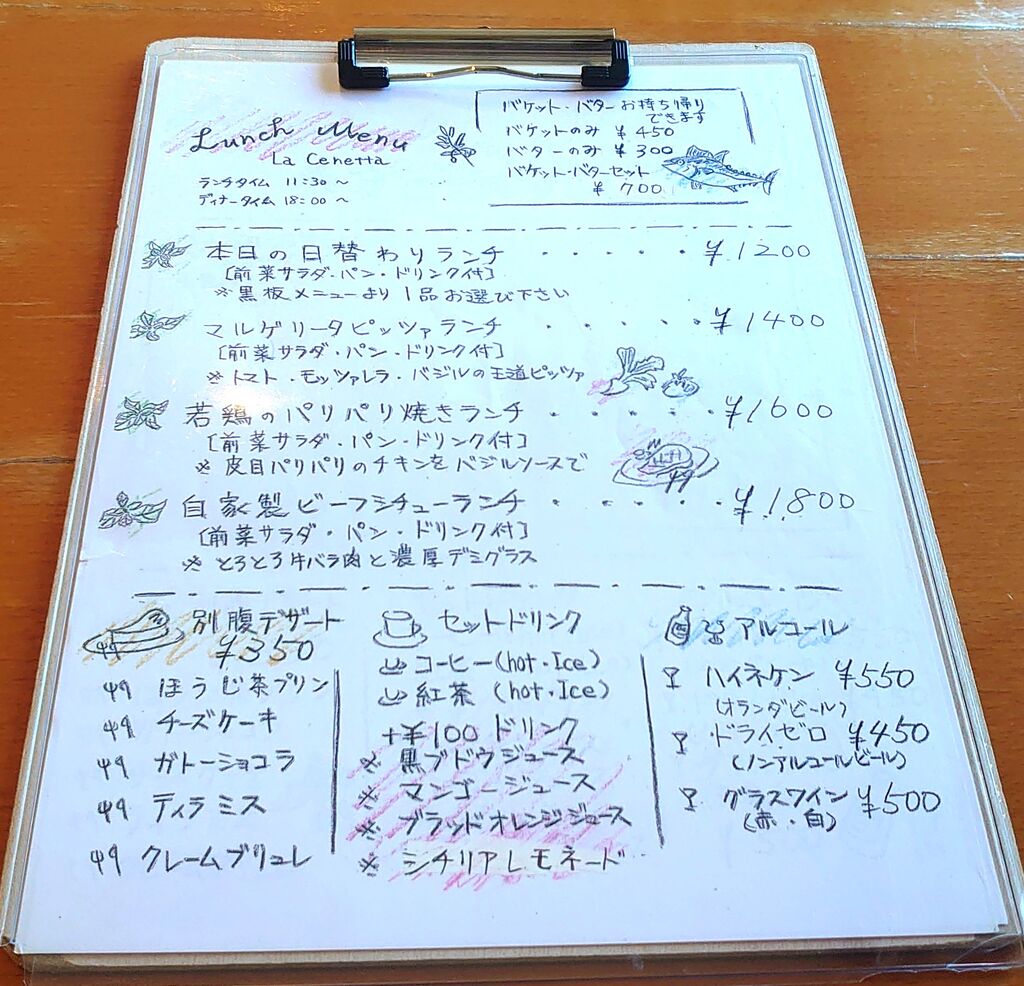 Lunch Menu
La Cenetta
ランチタイム 11:30 ~
ディナータイム 18:00 ~
バケット・バターお持ち帰り
できます
バケットのみ ¥450
バターのみ ¥300
バケット・バターセット
¥700
本日の日替わりランチ ・・・・・ ¥1200
[前菜サラダ・パン・ドリンク付]
※黒板メニューより1品お選び下さい
マルゲリータピッツァランチ ・・・・・ ¥1400
[前菜サラダ・パン・ドリンク付]
※トマト・モッツァレラ・バジルの王道ピッツァ
若鶏のパリパリ焼きランチ ・・・・・ ¥1600
[前菜サラダ・パン・ドリンク付]
※ 皮目パリパリのチキンをバジルソースで
自家製ビーフシチューランチ ・・・・・ ¥1,800
[前菜サラダ・パン・ドリンク付]
※ とろとろ牛バラ肉と濃厚デミグラス
別腹デザート
¥350
ほうじ茶プリン
チーズケーキ
ガトーショコラ
ティラミス
クレームブリュレ
セットドリンク
コーヒー(hot・Ice)
紅茶 (hot・Ice)
+¥100 ドリンク
※ 黒ブドウジュース
※ マンゴージュース
※ ブラッドオレンジジュース
※ シチリアレモネード
アルコール
ハイネケン ¥550
(オランダビール)
ドライゼロ ¥450
(ノンアルコールビール)
グラスワイン ¥500
(赤・白)